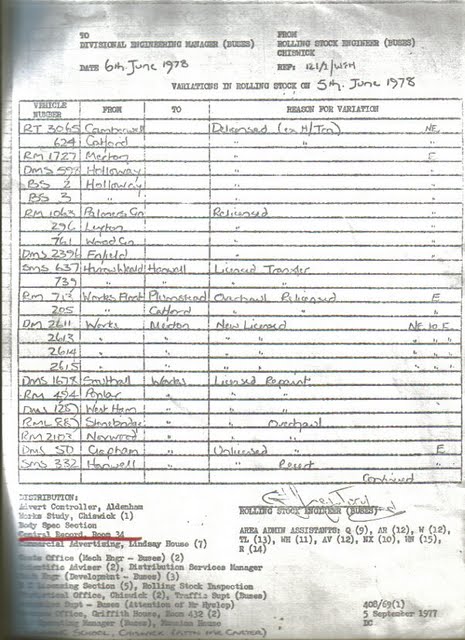 TO FROM
DIVISIONAL ENGINEERING MANAGER (BUSES) ROLLING STOCK ENGINEER (BUSES)
CHISWICK
DATE 6th June 1978 REF: 121/2/WSM
VARIATIONS IN ROLLING STOCK ON 5th. June 1978
VEHICLE NUMBER FROM TO REASON FOR VARIATION
RT 3065 Camberwell Delicensed (ex H/Trn) NE
624 Catford " "
RM 1727 Merton " E
DMS 598 Holloway " "
BS 2 Holloway " "
BS 3 " " "
RM 1063 Palmers Gn Relicensed "
296 Leyton " "
761 Wood Gn " "
DMS 2396 Enfield " "
SMS 637 Harrow Weald Hanwell Licensed Transfer
739 " " "
RM 713 Works Float Plumstead Overhaul Relicensed E
205 " Catford " "
DM 2611 Works Merton New Licensed NE 10 E
2613 " " " "
2614 " " " "
2615 " " " "
DMS 1678 Southall Works Licensed Repaint
RM 494 Poplar " "
DMS 1251 West Ham " "
RML 887 Stonebridge " " Overhaul
RM 2103 Norwood " "
DMS 50 Clapham " Unlicensed E
SMS 332 Hanwell " " Recert "
Continued
DISTRIBUTION:
Advert Controller, Aldenham
Works Study, Chiswick (1)
Body Spec Section
Central Record, Room 34
Commercial Advertising, Lindsay House (7)
Office (Mech Engr - Buses) (2)
Scientific Adviser (2), Distribution Services Manager
Engr (Development - Buses) (3)
Licensing Section (5), Rolling Stock Inspection
Office, Chiswick (2), Traffic Supt (Buses)
Supt - Buses (Attention of Mr Hyslop)
Office, Griffith House, Room 432 (2)
Operating Manager (Buses), Mansion House
SCHOOL, CHISWICK
ROLLING STOCK ENGINEER (BUSES)
AREA ADMIN ASSISTANTS: Q (9), AR (12), W (12),
TL (13), WH (11), AV (12), NX (10), HN (15),
R (14)
408/69(1)
5 September 1977
DC